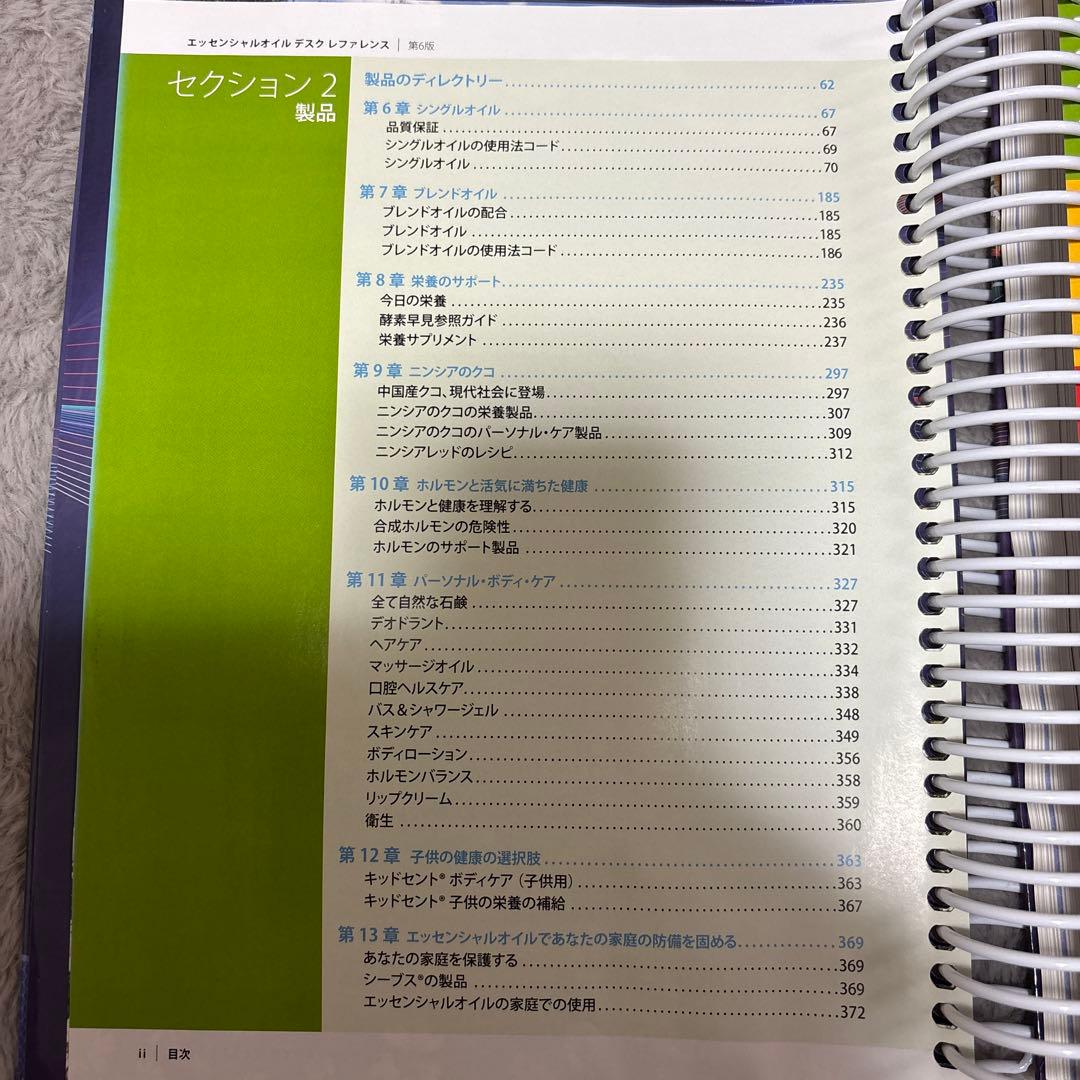 エッセンシャルオイル デスク レファレンス | 第6版
セクション 2
製品
製品のディレクトリー 62
第 6 章 シングルオイル 67
品質保証 67
シングルオイルの使用法コード 69
シングルオイル 70
第 7 章 ブレンドオイル 185
ブレンドオイルの配合 185
ブレンドオイル 185
ブレンドオイルの使用法コード 186
第 8 章 栄養のサポート 235
今日の栄養 235
酵素早見参照ガイド 236
栄養サプリメント 237
第 9 章 ニンシアのクコ 297
中国産クコ、現代社会に登場 297
ニンシアのクコの栄養製品 307
ニンシアのクコのパーソナル・ケア製品 309
ニンシアレッドのレシピ 312
第 10 章 ホルモンと活気に満ちた健康 315
ホルモンと健康を理解する 315
合成ホルモンの危険性 320
ホルモンのサポート製品 321
第 11 章 パーソナル・ボディ・ケア 327
全て自然な石鹸 327
デオドラント 331
ヘアケア 332
マッサージオイル 334
口腔ヘルスケア 338
バス＆シャワージェル 348
スキンケア 349
ボディローション 356
ホルモンバランス 358
リップクリーム 359
衛生 360
第 12 章 子供の健康の選択肢 363
キッドセント® ボディケア（子供用） 363
キッドセント® 子供の栄養の補給 367
第 13 章 エッセンシャルオイルであなたの家庭の防備を固める 369
あなたの家庭を保護する 369
シーブス®の製品 369
エッセンシャルオイルの家庭での使用 372
ii | 目次